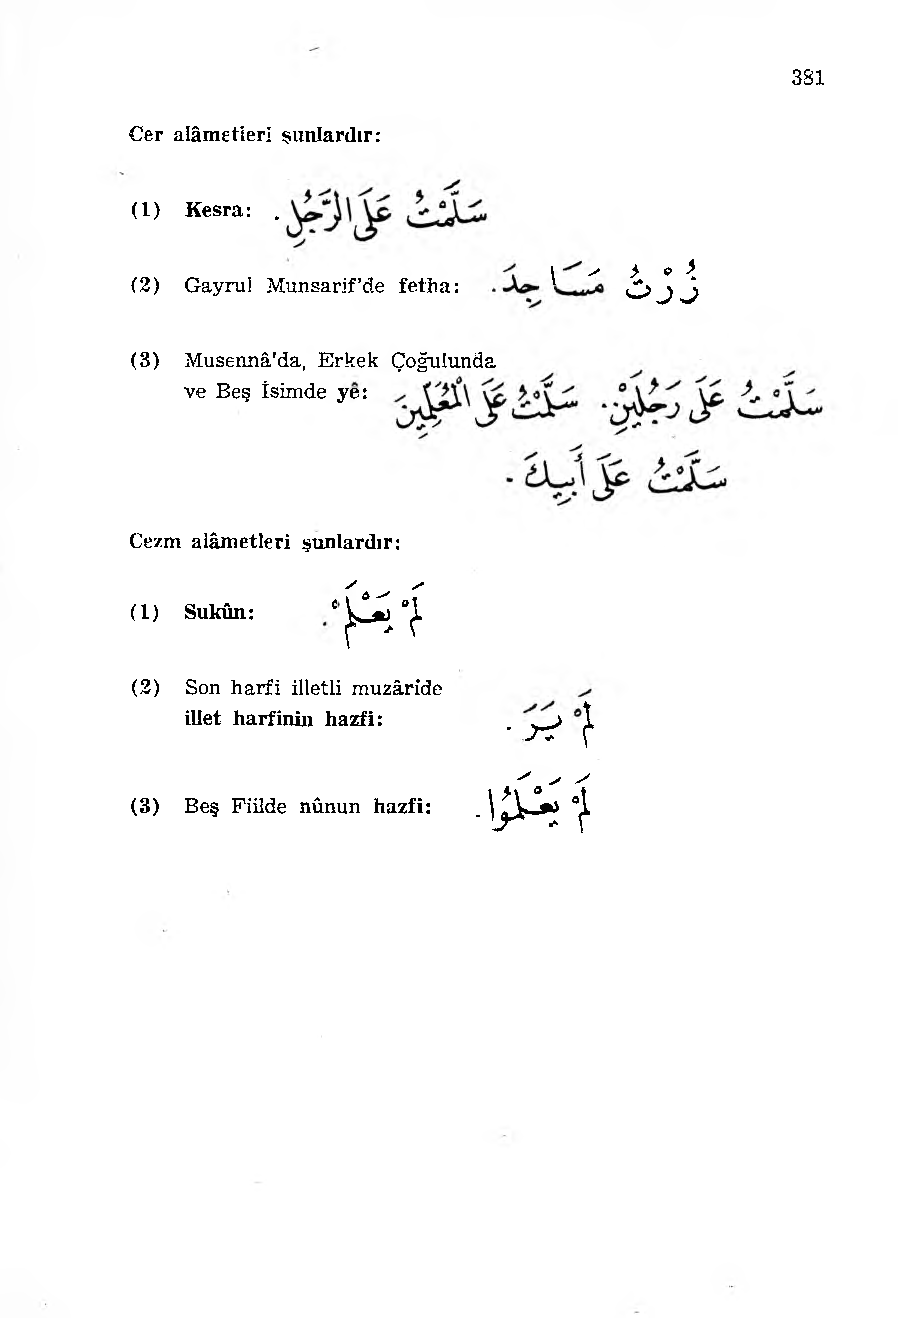 381
Cer alâmetleri şunlardır:
(1) Kesra: سَلَّمْتُ عَلَى الرَّجُلِ.
(2) Gayrul Munsarif'de fetha: زُرْتُ مَسَاجِدَ.
(3) Musennâ'da, Erkek Çoğulunda
ve Beş İsimde yê: سَلَّمْتُ عَلَى رَجُلَيْنِ. سَلَّمْتُ عَلَى الْمُعَلِّمِينَ
سَلَّمْتُ عَلَى أَبِيكَ.
Cezm alâmetleri şunlardır:
(1) Sukûn: لَمْ يَعْلَمْ.
(2) Son harfi illetli muzâride
illet harfinin hazfi: لَمْ يَرَ.
(3) Beş Fiilde nûnun hazfi: لَمْ يَعْلَمُوا.